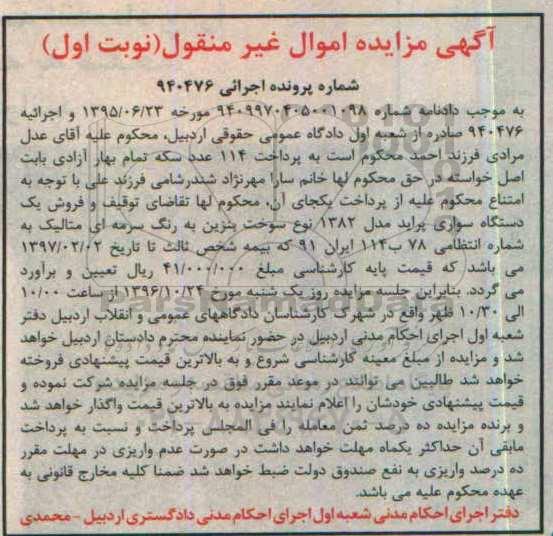 آگهی مزایده اموال غیر منقول(نوبت اول)
شماره پرونده اجرائی ۹۴۰۴۷۶
به موجب دادنامه شماره ۹۴۰۹۹۷۰۴۰۵۰۰۱۰۹۸ مورخه ۱۳۹۵/۰۶/۲۳ و اجرائیه
۹۴۰۴۷۶ صادره از شعبه اول دادگاه عمومی حقوقی اردبیل، محکوم علیه آقای عدل
مرادی فرزند احمد محکوم است به پرداخت ۱۱۴ عدد سکه تمام بهار آزادی بابت
اصل خواسته در حق محکوم لها خانم سارا مهرنژاد شندرشامی فرزند علی با توجه به
امتناع محکوم علیه از پرداخت یکجای آن، محکوم لها تقاضای توقیف و فروش یک
دستگاه سواری پراید مدل ۱۳۸۲ نوع سوخت بنزین به رنگ سرمه ای متالیک به
شماره انتظامی ۷۸ ب۱۱۴ ایران ۹۱ که بیمه شخص ثالث تا تاریخ ۱۳۹۷/۰۲/۰۲
می باشد که قیمت پایه کارشناسی مبلغ ۴۱/۰۰۰/۰۰۰ ریال تعیین و برآورد
می گردد. بنابراین جلسه مزایده روز یک شنبه مورخ ۱۳۹۶/۱۰/۲۴ از ساعت ۱۰/۰۰
الی ۱۰/۳۰ ظهر واقع در شهرک کارشناسان دادگاههای عمومی و انقلاب اردبیل دفتر
شعبه اول اجرای احکام مدنی اردبیل در حضور نماینده محترم دادستان اردبیل خواهد
شد و مزایده از مبلغ معینه کارشناسی شروع و به بالاترین قیمت پیشنهادی فروخته
خواهد شد طالبین می توانند در موعد مقرر فوق در جلسه مزایده شرکت نموده و
قیمت پیشنهادی خودشان را اعلام نمایند مزایده به بالاترین قیمت واگذار خواهد شد
و برنده مزایده ده درصد ثمن معامله را فی المجلس پرداخت و نسبت به پرداخت
مابقی آن حداکثر یکماه مهلت خواهد داشت در صورت عدم واریزی در مهلت مقرر
ده درصد واریزی به نفع صندوق دولت ضبط خواهد شد ضمنا کلیه مخارج قانونی به
عهده محکوم علیه می باشد.
دفتر اجرای احکام مدنی شعبه اول اجرای احکام مدنی دادگستری اردبیل - محمدی